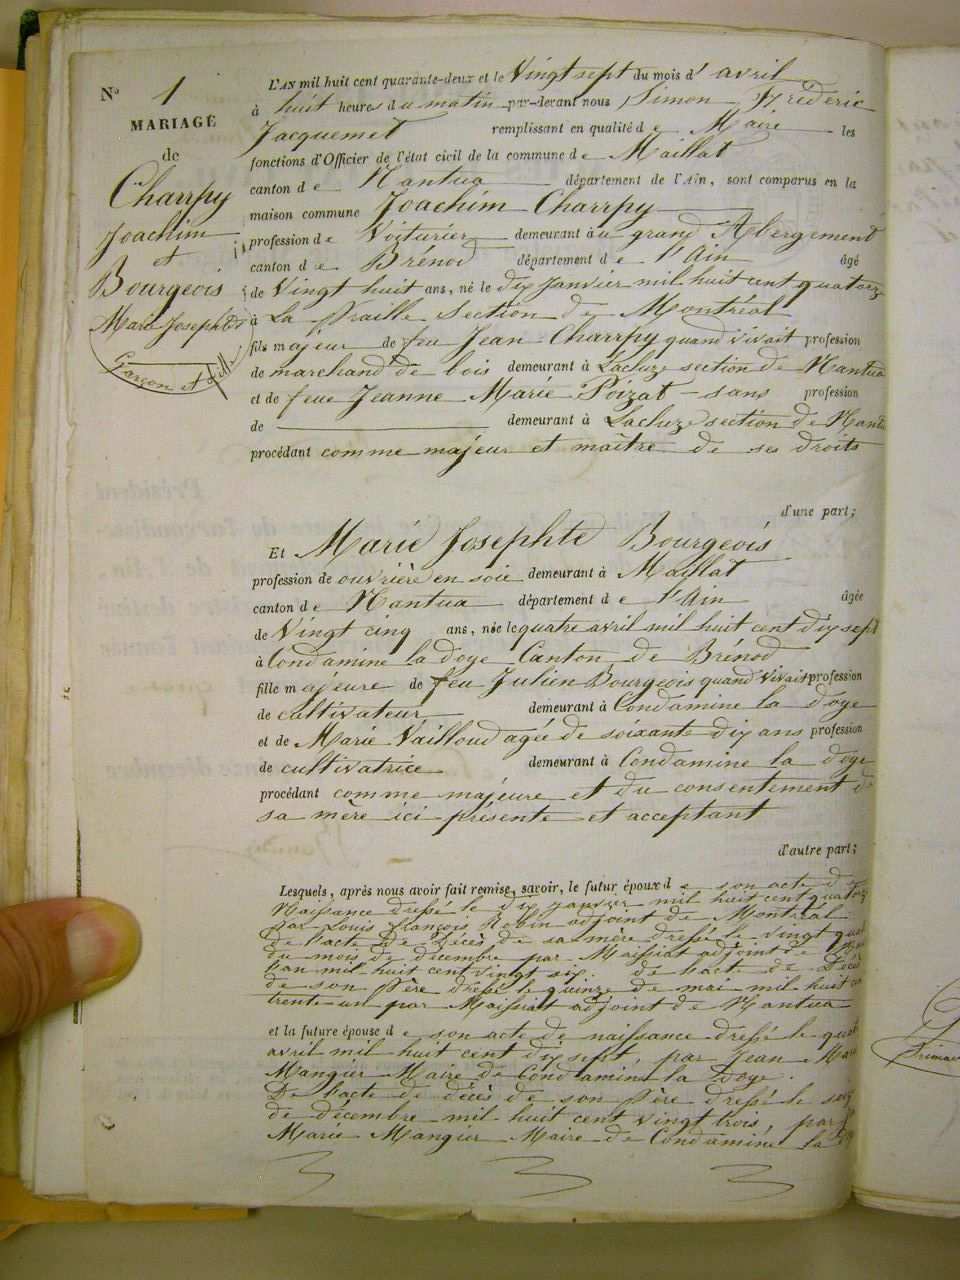 N° 1
MARIAGE
de
Charrpy
Joachim
et
Bourgeois
Marie Josephte
Garçon et fille
L'AN mil huit cent quarante-deux et le Vingt sept du mois d' avril
à huit heures du matin par-devant nous Simon Frédéric
Jacquemet remplissant en qualité de Maire les
fonctions d'Officier de l'état civil de la commune de Maillat
canton de Nantua département de l'Ain, sont comparus en la
maison commune Joachim Charrpy
profession de Voiturier demeurant au grand Abergement
canton de Brénod département de l'Ain âgé
de Vingt huit ans, né le dix janvier mil huit cent quatorze
à La Praille section de Montréal
fils majeur de feu Jean Charrpy quand vivait profession
de marchand de bois demeurant à Lacluze section de Nantua
et de feue Jeanne Marie Poizat - sans profession
de demeurant à Lacluze section de Nantu
procédant comme majeur et maître de ses droits
d'une part;
Et Marie Josephte Bourgeois
profession de ouvrière en soie demeurant à Maillat
canton de Nantua département de l'Ain âgée
de Vingt cinq ans, née le quatre avril mil huit cent dix sept
à Condamine la doye Canton de Brénod
fille majeure de feu Julien Bourgeois quand vivait profession
de cultivateur demeurant à Condamine la doye
et de Marie Vailloud agée de soixante dix ans profession
de cultivatrice demeurant à Condamine la doye
procédant comme majeure et du consentement de
sa mère ici présente et acceptant
d'autre part;
Lesquels, après nous avoir fait remise, savoir, le futur époux de son acte de
Naissance dressé le dix janvier mil huit cent quatorze
par Louis François Robin adjoint de Montréal
de l'acte de décès de sa mère dressé le vingt quat
du mois de décembre par Maissiat adjoint de
l'an mil huit cent vingt six. de l'acte de Décès
de son Père dressé le quinze de mai mil huit ce
trente-un par Maissiat adjoint de Nantua
et la future épouse de son acte de naissance dressé le quat
avril mil huit cent dix sept, par Jean Marie
Mangier Maire de Condamine la Doye.
De l'acte de décès de son Père dressé le seiz
de décembre mil huit cent vingt trois, par J
Marie Mangier Maire de Condamine la Do